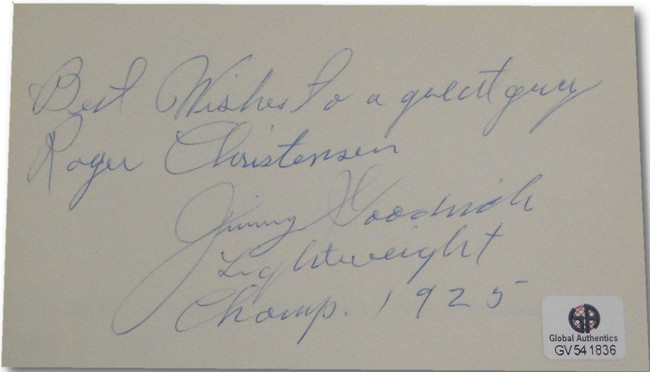 Best Wishes to a great guy
Roger Christensen
Jimmy Goodrich
Lightweight
Champ. 1925
Global Authentics
GV541836